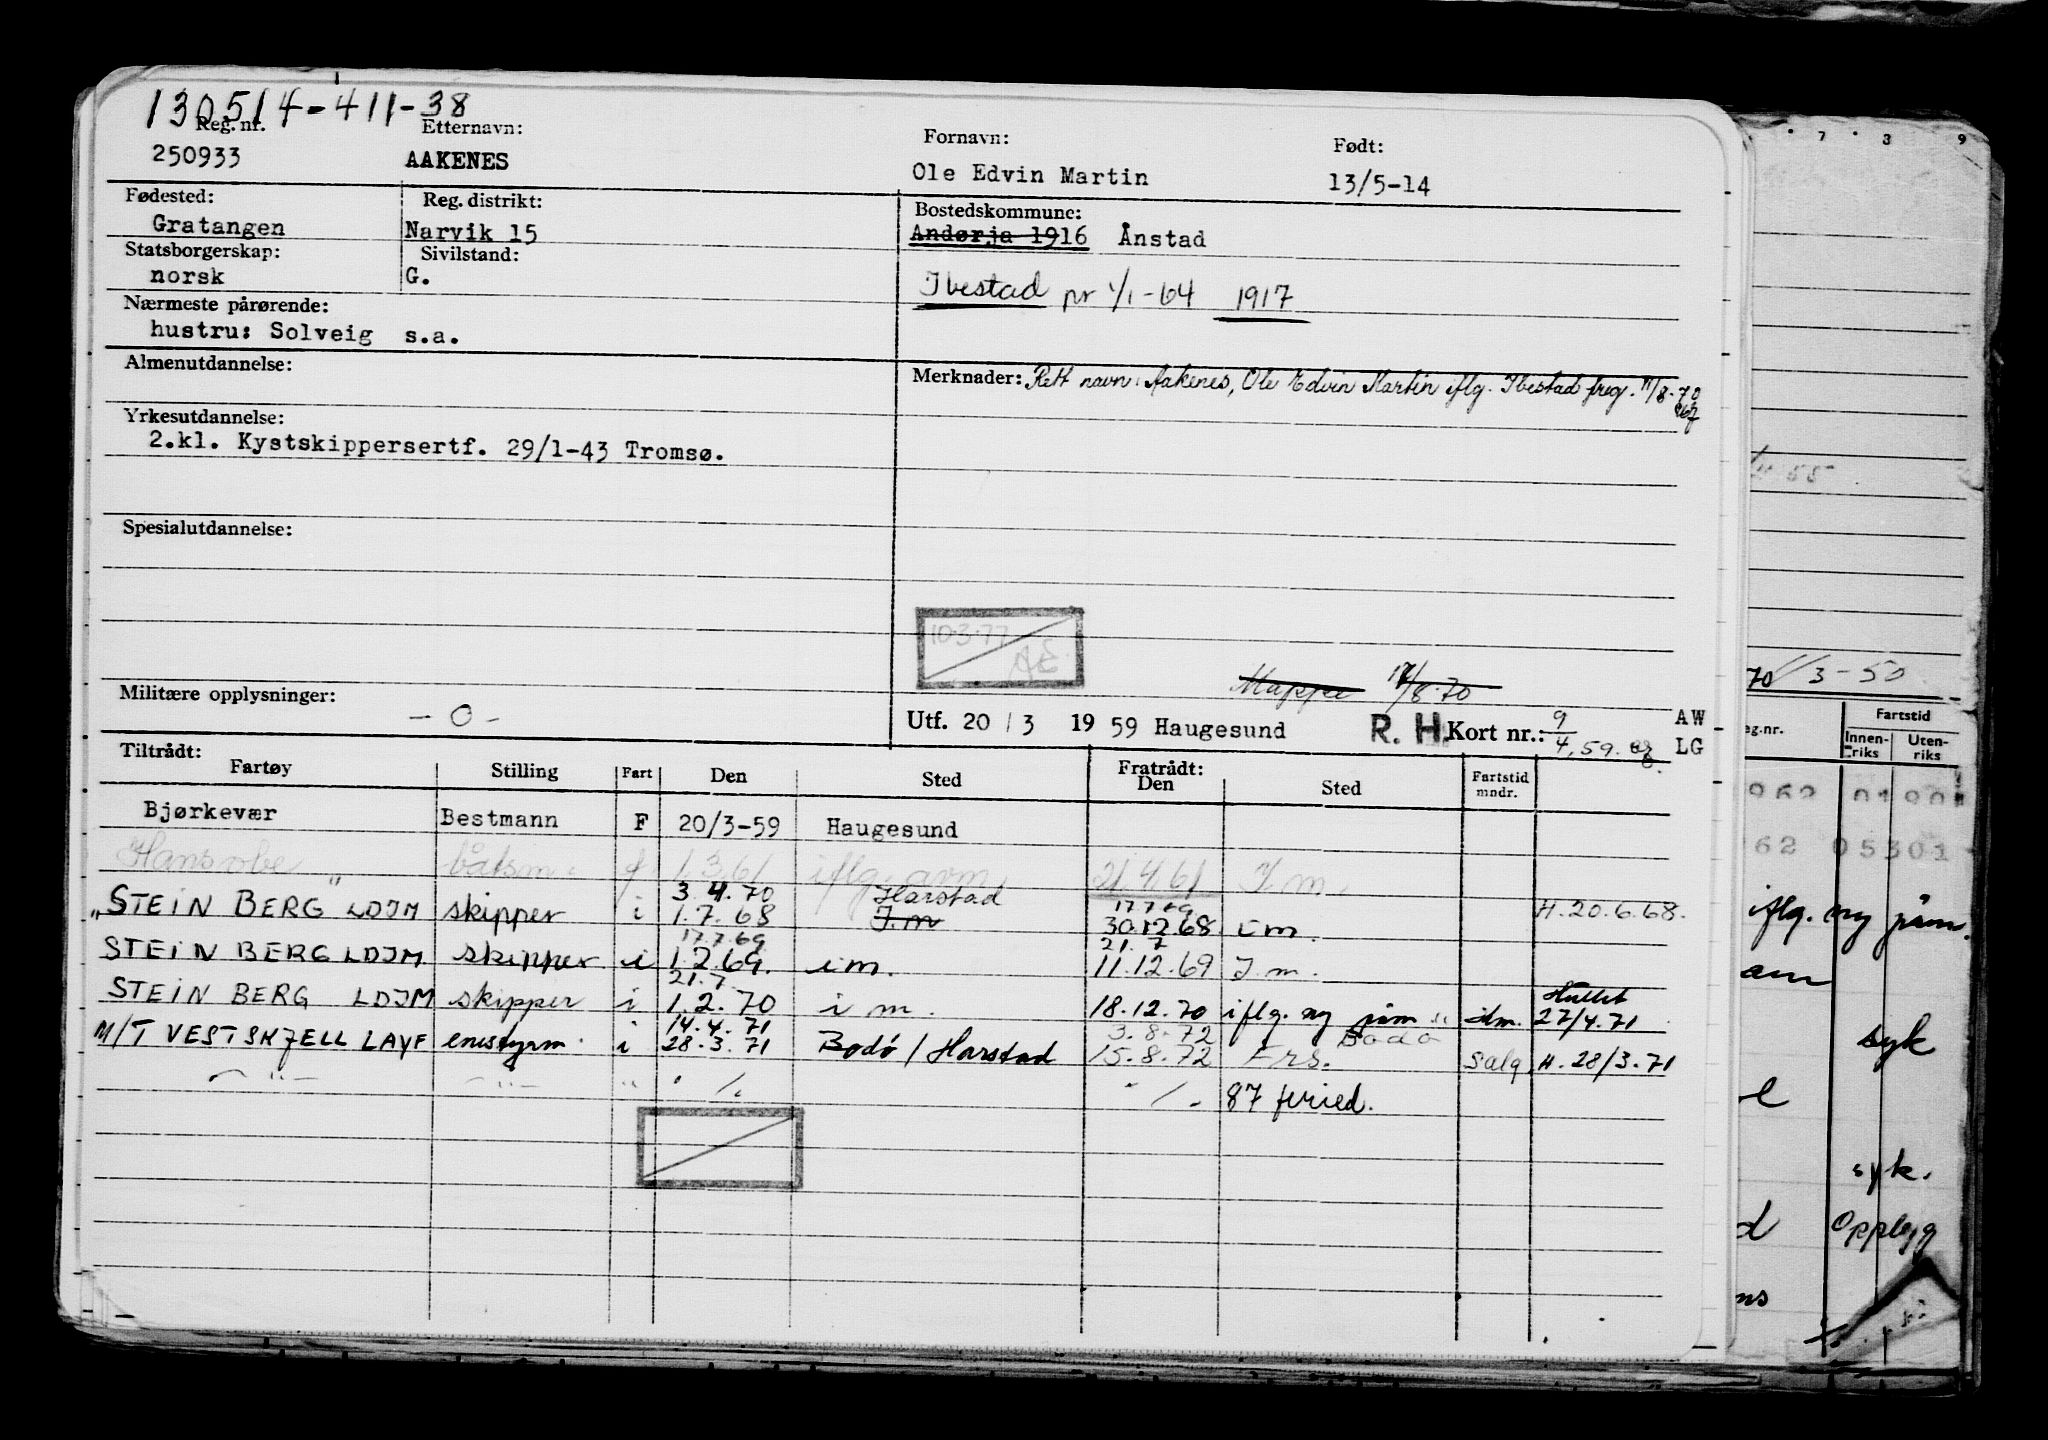 130514-411-38
Reg. nr. Etternavn: Fornavn: Født:
250933 AAKENES Ole Edvin Martin 13/5-14
Fødested: Reg. distrikt: Bostedskommune:
Gratangen Narvik 15 Andørja 1916 Ånstad
Statsborgerskap: Sivilstand:
norsk G. Ibestad pr 1/1-64 1917
Nærmeste pårørende:
hustru: Solveig s.a.
Almenutdannelse: Merknader: Rett navn: Aakenes, Ole Edvin Martin iflg. Ibestad freg. 11/8-70
Yrkesutdannelse:
2.kl. Kystskippersertf. 29/1-43 Tromsø.
Spesialutdannelse:
10.3.77
AE
Mappe 17/8.70
Militære opplysninger: -0-
Utf. 20/3 1959 Haugesund R. H. Kort nr.: 9/4.59. AW
LG
Tiltrådt: Fratrådt:
Fartøy Stilling Fart Den Sted Den Sted Fartstid mndr.
Bjørkevær Bestmann F 20/3-59 Haugesund
båtsm. f 1.3.61 iflg. avm 21.4.61 I m.
3.4.70 Harstad 17.7.69
"STEIN BERG" LDJM skipper i 1.7.68 I.m 30.12.68 I m. H.20.6.68.
17.7.69 21.7
STEIN BERG LDJM skipper i 1.2.69. i m. 11.12.69 I m.
21.7
STEIN BERG LDJM skipper i 1.2.70 i m. 18.12.70 iflg. ny jåm. idm. 27/4.71
14.4.71 3.8.72 Bodø
M/T VESTSKJELL LAYF enestyrm. i 28.3.71 Bodø / Harstad 15.8.72 Frs. Salg H.28/3.71
- " - - " - " ./. ./. 87 feried.
7 8 9
70 /3-50
eg.nr. Fartstid
Innen-riks Uten-riks
962
62 05301
iflg. ny jåm.
syk
syk.
Opplegg